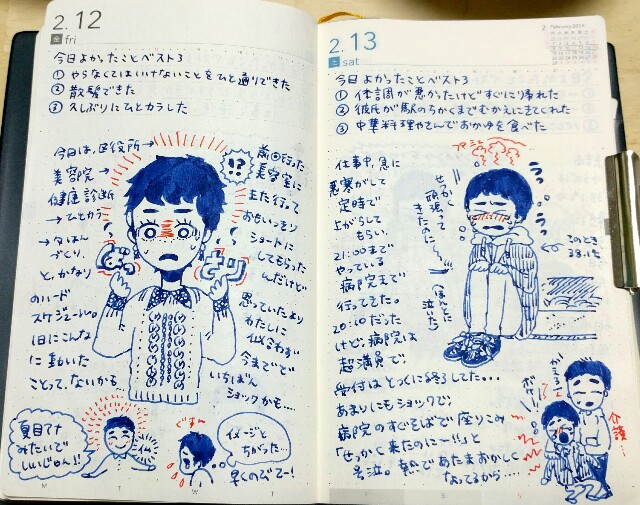 2.12
金 fri
今日よかったことベスト3
① やらなくてはいけないことをひと通りできた
② 散髪できた
③ 久しぶりにひとカラした
今日は、区役所→
美容院→
健康診断
→ひとカラ
→夕ごはん
づくり、
と、かなり
のハード
スケジュール。
1日にこんな
に動いた
ことって、ないかも…
!?
前回行った
美容室に
また行って
おもいっきり
ショートに
してもらった
んだけど
思っていたより
わたしに
似合わず
今までで
いちばん
ショックかも…
夏目アナ
みたいで
いいじゃん!!
イメージと
ちがった…
早くのびてー!
M T W T
2.13
土 sat
2 February 2016
今日よかったことベスト3
① 体調が悪かったけどすぐに帰れた
② 彼氏が駅のちかくまでむかえにきてくれた
③ 中華料理やさんでおかゆを食べた
仕事中、急に
悪寒がして
定時で
上がらして
もらい、
21:00まで
やっている
病院まで
行ってきた。
20:10だった
けど、病院は
超満員で
受付はとっくに終了した…
あまりにもショックで、
病院のすぐそばで座りこみ
「せっかく来たのにー!!」と
号泣。熱であたまおかしく
なってるから…
せっかく
頑張って
きたのに〜
(ほんとに
泣いた)
このとき
38.1℃
かえるよ
介護…